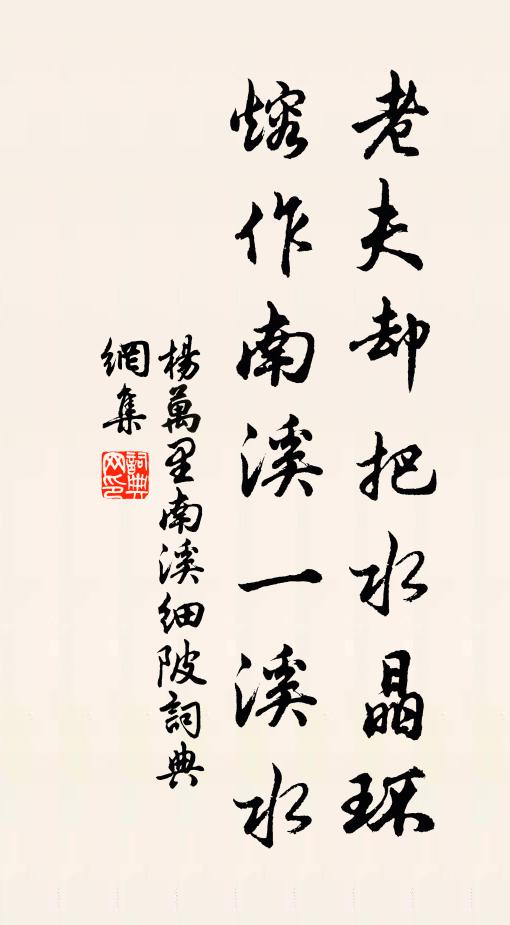 老夫却把水晶环
熔作南溪一溪水
楊萬里南溪細陂詞典
網集
詞典網印